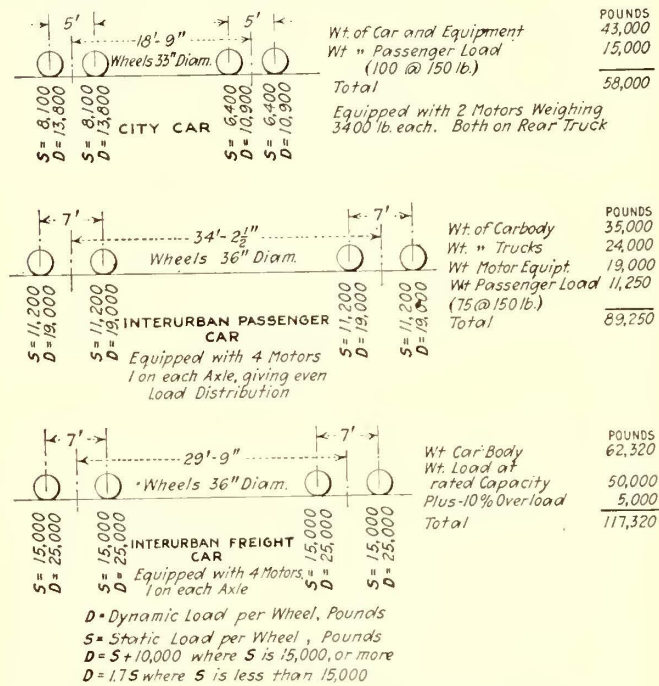 5'
5'
18'-9"
Wheels 33" Diam.
S = 8,100
D = 13,800
S = 8,100
D = 13,800
S = 6,400
D = 10,900
S = 6,400
D = 10,900
CITY CAR
POUNDS
Wt. of Car and Equipment 43,000
Wt " Passenger Load 15,000
(100 @ 150 lb.)
Total 58,000
Equipped with 2 Motors Weighing
3400 lb. each. Both on Rear Truck
7'
7'
34'-2½"
Wheels 36" Diam.
S = 11,200
D = 19,000
S = 11,200
D = 19,000
S = 11,200
D = 19,000
S = 11,200
D = 19,000
INTERURBAN PASSENGER
CAR
Equipped with 4 Motors
1 on each Axle, giving even
Load Distribution
POUNDS
Wt. of Carbody 35,000
Wt. " Trucks 24,000
Wt Motor Equipt. 19,000
Wt Passenger Load 11,250
(75 @ 150 lb.)
Total 89,250
7'
7'
29'-9"
Wheels 36" Diam.
S = 15,000
D = 25,000
S = 15,000
D = 25,000
S = 15,000
D = 25,000
S = 15,000
D = 25,000
INTERURBAN FREIGHT
CAR
Equipped with 4 Motors,
1 on each Axle
POUNDS
Wt Car Body 62,320
Wt. Load at
rated Capacity 50,000
Plus-10% Overload 5,000
Total 117,320
D = Dynamic Load per Wheel, Pounds
S = Static Load per Wheel, Pounds
D = S + 10,000 where S is 15,000, or more
D = 1.7 S where S is less than 15,000